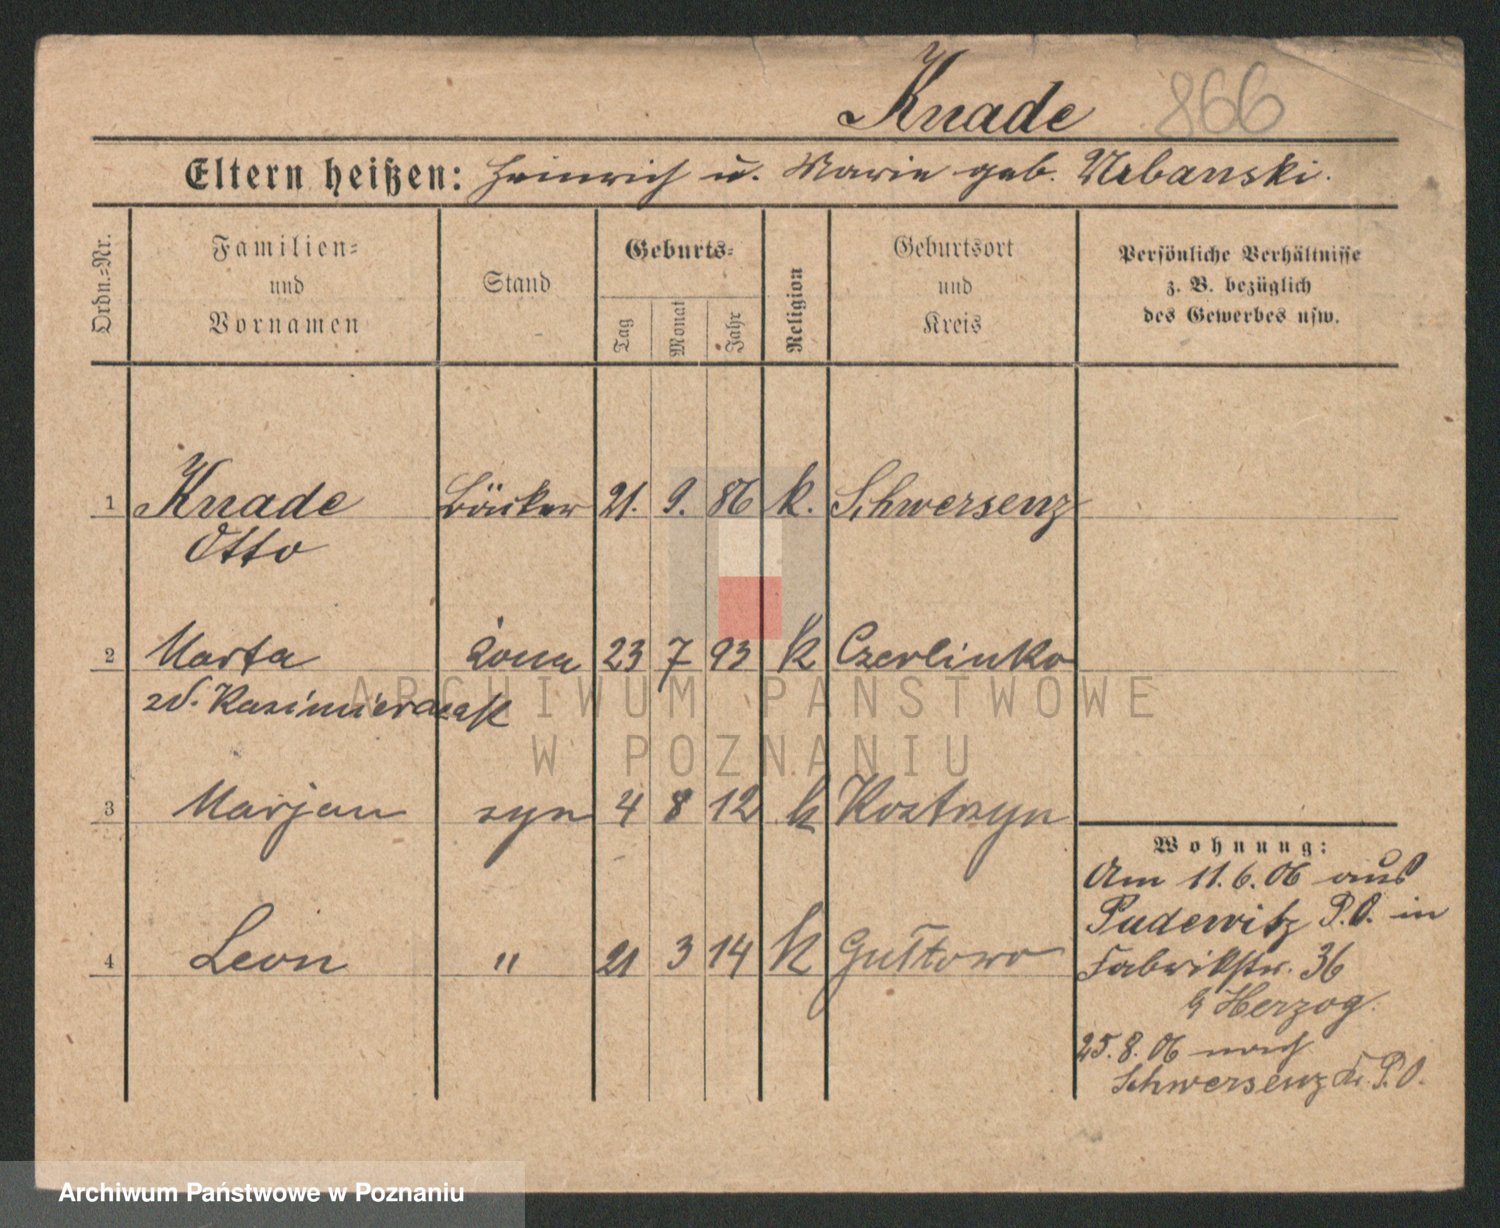 Knade 866
Eltern heißen: Heinrich u. Marie geb. Urbanski.
Ordn.-Nr.
Familien-
und
Vornamen
Stand
Geburts-
Tag
Monat
Jahr
Religion
Geburtsort
und
Kreis
Persönliche Verhältnisse
z. B. bezüglich
des Gewerbes usw.
1 Knade Bäcker 21. 9. 86 k. Schwersenz
Otto
2 Marta żona 23 7 93 k Czerlinko
zd. Kazimierczak
3 Marjan syn 4 8 12 k Kostrzyn
4 Leon " 21 3 14 k Gułtowo
Wohnung:
Am 11.6.06 aus
Pudewitz P.O. in
Fabrikstr. 36
b Herzog.
25.8.06 nach
Schwersenz Kr. P.O.
ARCHIWUM PAŃSTWOWE
W POZNANIU
Archiwum Państwowe w Poznaniu